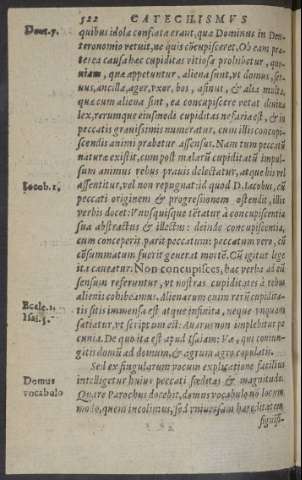 522 CATECHISMVS
Deut. 5. quibus idola conflata erant, quæ Dominus in Deu
teronomio vetuit, ne quis cōcupisceret. Ob eam præ
terea causa hæc cupiditas vitiosa prohibetur, quo-
niam, quæ appetuntur, aliena sunt, vt domus, ser-
uus, ancilla, ager, vxor, bos, asinus, & alia multa,
quæ cum aliena sint, ea concupiscere vetat diuina
lex, rerumque eiusmodi cupiditas nefaria est, & in
peccatis grauissimis numeratur, cum illis concupi-
scendis animi præbetur assensus. Nam tum peccatū
natura existit, cum post malarū cupiditatū impul-
sum animus rebus prauis delectatur, atque his vel
Iacob. 1. assentitur, vel non repugnat id quod D. Iacobus, cū
peccati originem & progressionem ostendit, illis
verbis docet: Vnusquisque tētatur à concupiscentia
sua abstractus & illectus: deinde concupiscentia,
cum conceperit parit peccatum: peccatum vero, cū
cōsummatum fuerit generat mortē. Cū igitur lege
ita caueatur: Non concupisces, hæc verba ad eū
sensum referuntur, vt nostras cupiditates à rebus
alienis cohibeamus. Alienarum enim rerū cupidita-
Eccle. 1. tis sitis immensa est atque infinita, neque vnquam
Isai. 5. satiatur, vt scriptum est: Auarus non implebitur pe
cunia. De quo ita est apud Isaiam: Væ, qui coniun-
gitis domū ad domum, & agrum agro copulatis.
Sed ex singularum vocum explicatione facilius
Domus intelligetur huius peccati fœditas & magnitudo.
vocabulo Quare Parochus docebit, domus vocabulo nō locum
modo, quem incolimus, sed vniuersam hæreditatem
signifi-